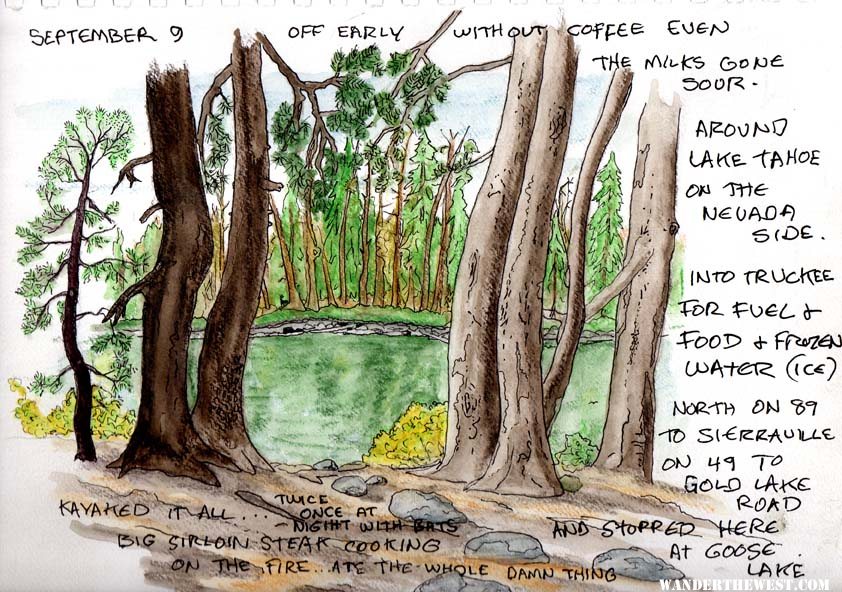 SEPTEMBER 9 OFF EARLY WITHOUT COFFEE EVEN
THE MILKS GONE
SOUR.
AROUND
LAKE TAHOE
ON THE
NEVADA
SIDE.
INTO TRUCKEE
FOR FUEL &
FOOD & FROZEN
WATER (ICE)
NORTH ON 89
TO SIERRAVILLE
ON 49 TO
GOLD LAKE
ROAD
AND STOPPED HERE
AT GOOSE
LAKE
KAYAKED IT ALL... TWICE
ONCE AT
NIGHT WITH BATS
BIG SIRLOIN STEAK COOKING
ON THE FIRE...ATE THE WHOLE DAMN THING
WANDERTHEWEST.COM